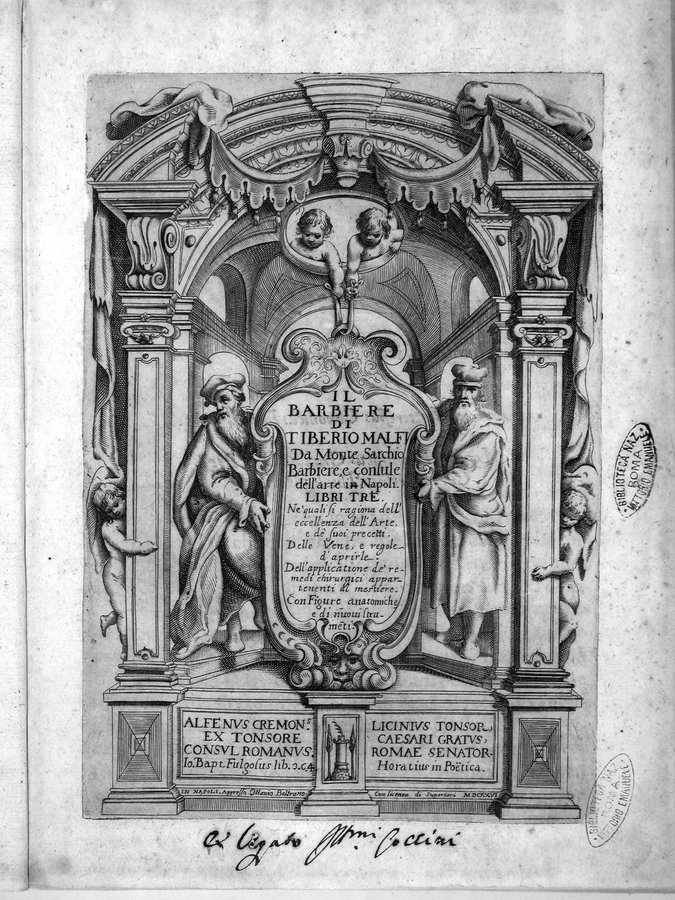 IL
BARBIERE
DI
TIBERIO MALFI
Da Monte Sarchio
Barbiere, e consule
dell'arte in Napoli.
LIBRI TRE.
Ne' quali si ragiona dell'
eccellenza dell'Arte.
e de' suoi precetti.
Delle Vene, e regole
d'aprirle.
Dell'applicatione de' re-
medi chirurgici appar-
tenenti al mestiere.
Con Figure anatomiche,
e di nuovi stra-
mēti.
ALFENVS CREMONˢ
EX TONSORE
CONSVL ROMANVS.
Io. Bapt. Fulgosus lib. 3. C.4.
LICINIVS TONSOR,
CAESARI GRATVS,
ROMAE SENATOR.
Horatius in Poëtica.
IN NAPOLI. Appresso Ottavio Beltrano
Con licenza de Superiori MDCXXVI
ex legato
BIBLIOTECA NAZ.
ROMA
VITTORIO EMANUELE
BIBLIOTECA NAZ.
ROMA
VITTORIO EMANUELE